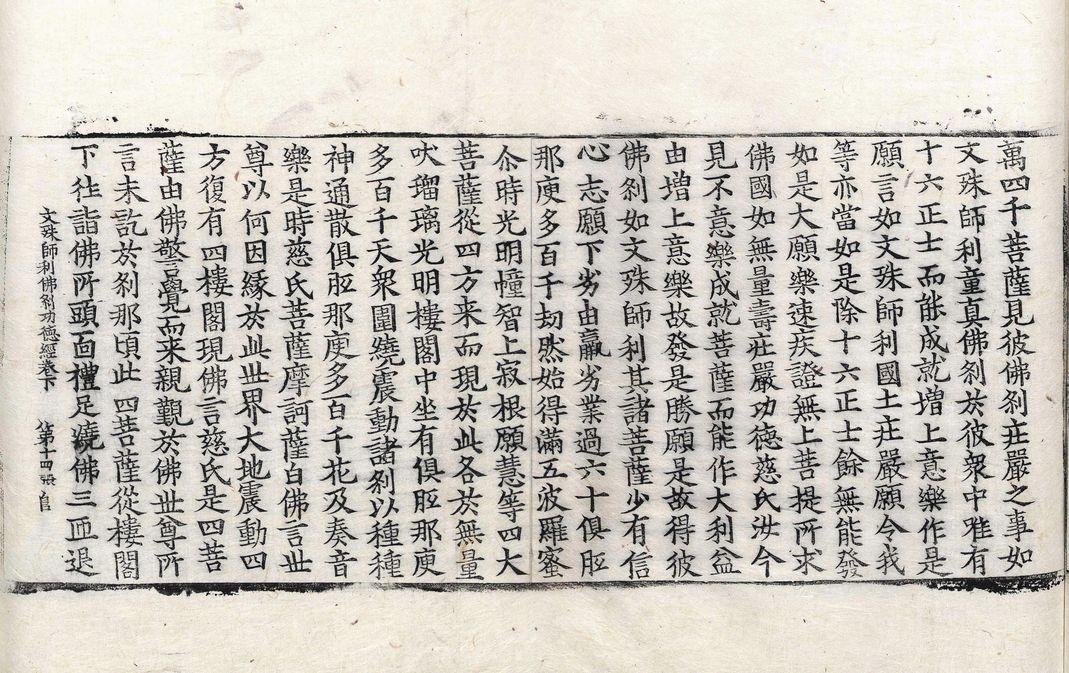 萬四千菩薩見彼佛刹庄嚴之事如
文殊師利童真佛刹於彼衆中唯有
十六正士而能成就增上意樂作是
願言如文殊師利國土庄嚴願令我
等亦當如是除十六正士餘無能發
如是大願樂速疾證無上菩提所求
佛國如無量壽庄嚴功徳慈氏汝今
見不意樂成就菩薩而能作大利益
由增上意樂故發是勝願是故得彼
佛刹如文殊師利其諸菩薩少有信
心志願下劣由羸劣業過六十俱胝
那庾多百千劫然始得滿五波羅蜜
尒時光明幢智上寂根願慧等四大
菩薩從四方来而現於此各於無量
吠瑠璃光明樓閣中坐有俱胝那庾
多百千天衆圍繞震動諸刹以種種
神通散俱胝那庾多百千花及奏音
樂是時慈氏菩薩摩訶薩白佛言世
尊以何因緣於此世界大地震動四
方復有四樓閣現佛言慈氏是四菩
薩由佛警覺而来親覲於佛世尊所
言未訖於刹那頃此四菩薩從樓閣
下往詣佛所頭面禮足繞佛三匝退
文殊師利佛刹功徳經卷下 第十四張 自